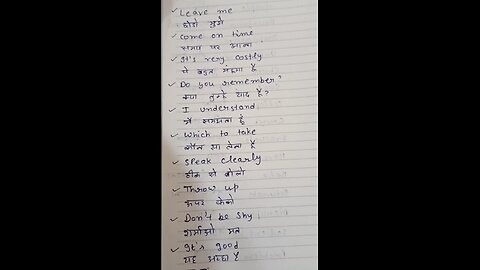 ✓ Leave me
छोडो मुझे
✓ Come on time
समय पर आना
✓ It's very costly
ये बहुत मंहगा है
✓ Do you remember?
क्या तुम्हे याद है?
✓ I understand
मैं समझता हूँ
✓ Which to take
कौन सा लेना है
✓ Speak clearly
ठीक से बोलो
✓ Throw up
ऊपर फेंको
✓ Don't be shy
शर्माओ मत
✓ It's good
यह अच्छा है